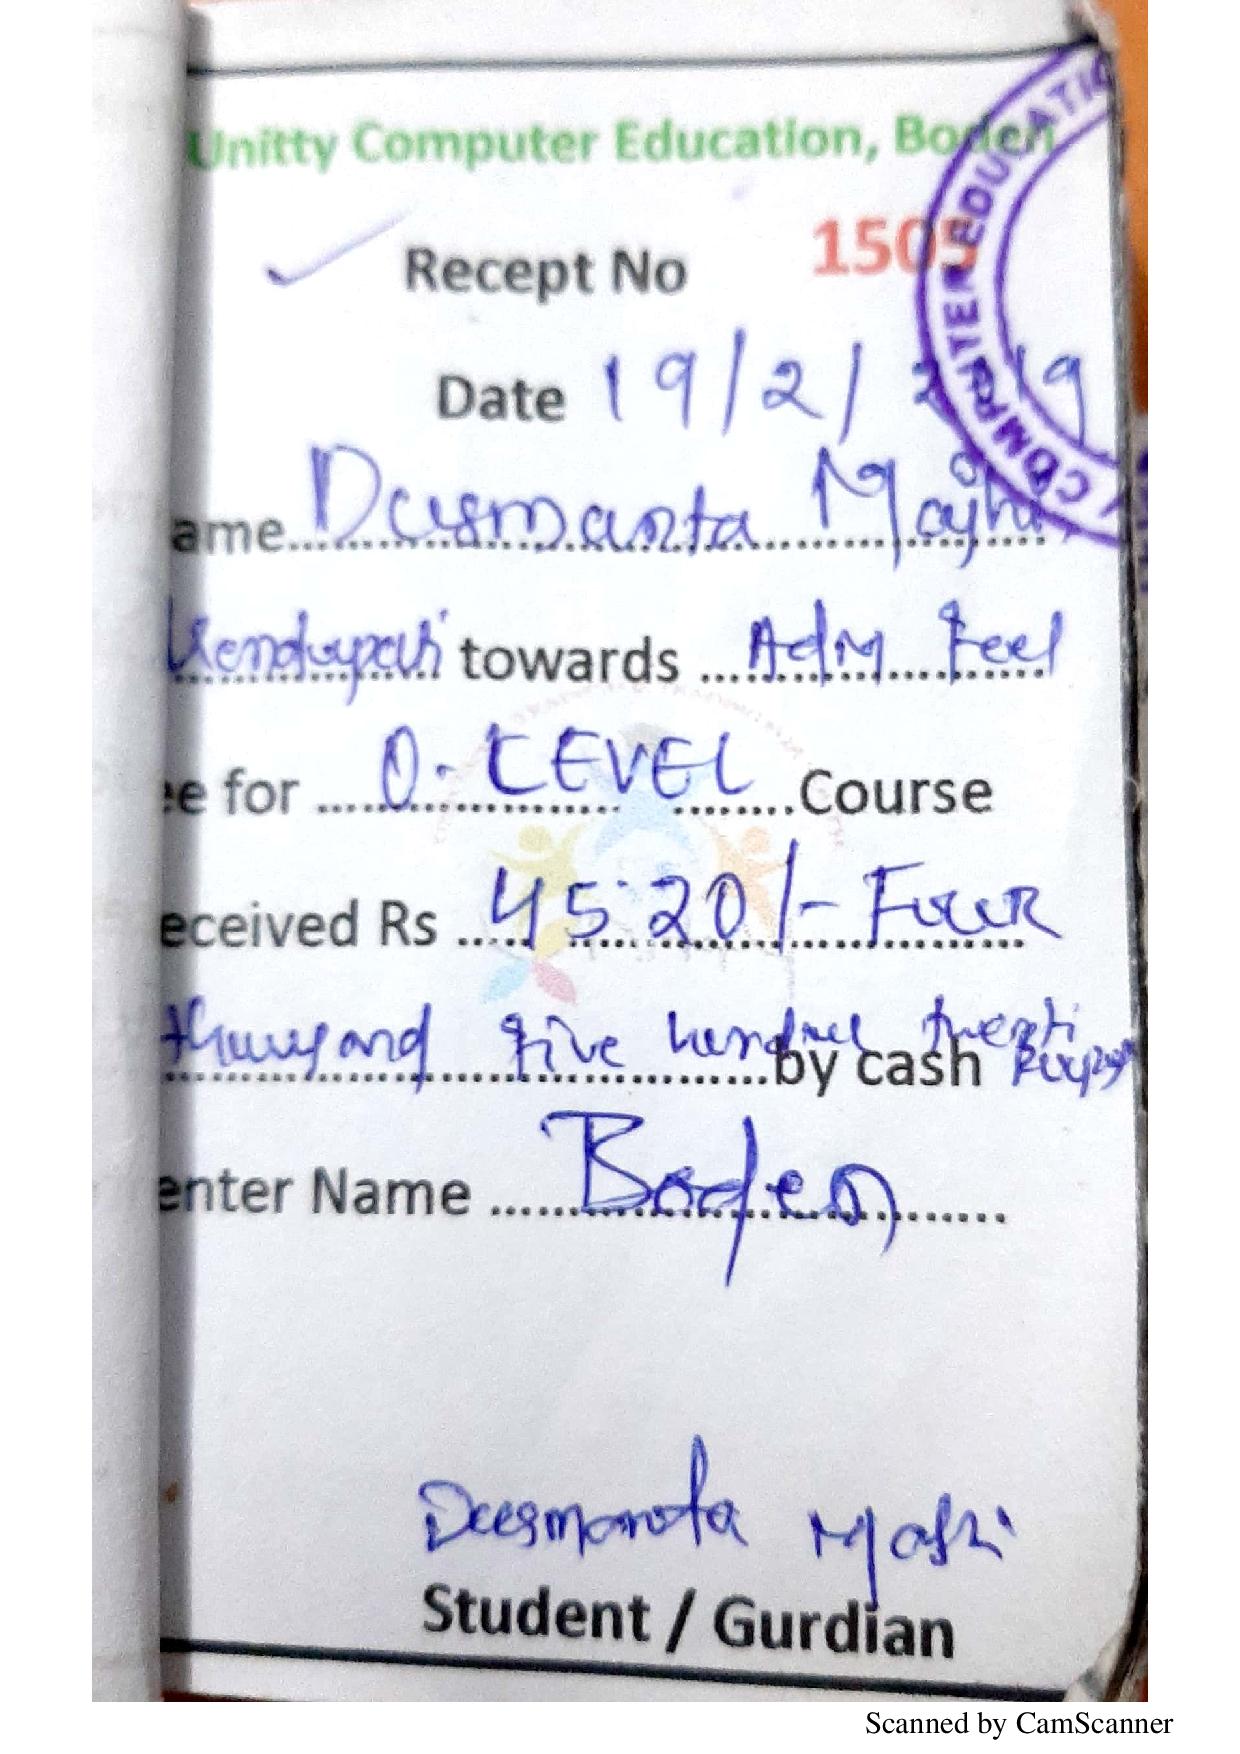 Unitty Computer Education, Boden
Recept No 1505
Date 19/2/2019
ame Dusmanta Majhi
Kendupati towards Adm Feel
ee for O-LEVEL Course
eceived Rs 4520/- Four
thousand five hundred twenti
by cash
enter Name Boden
Dusmanta Majhi
Student / Gurdian
COMPUTER EDUCATIO
Scanned by CamScanner